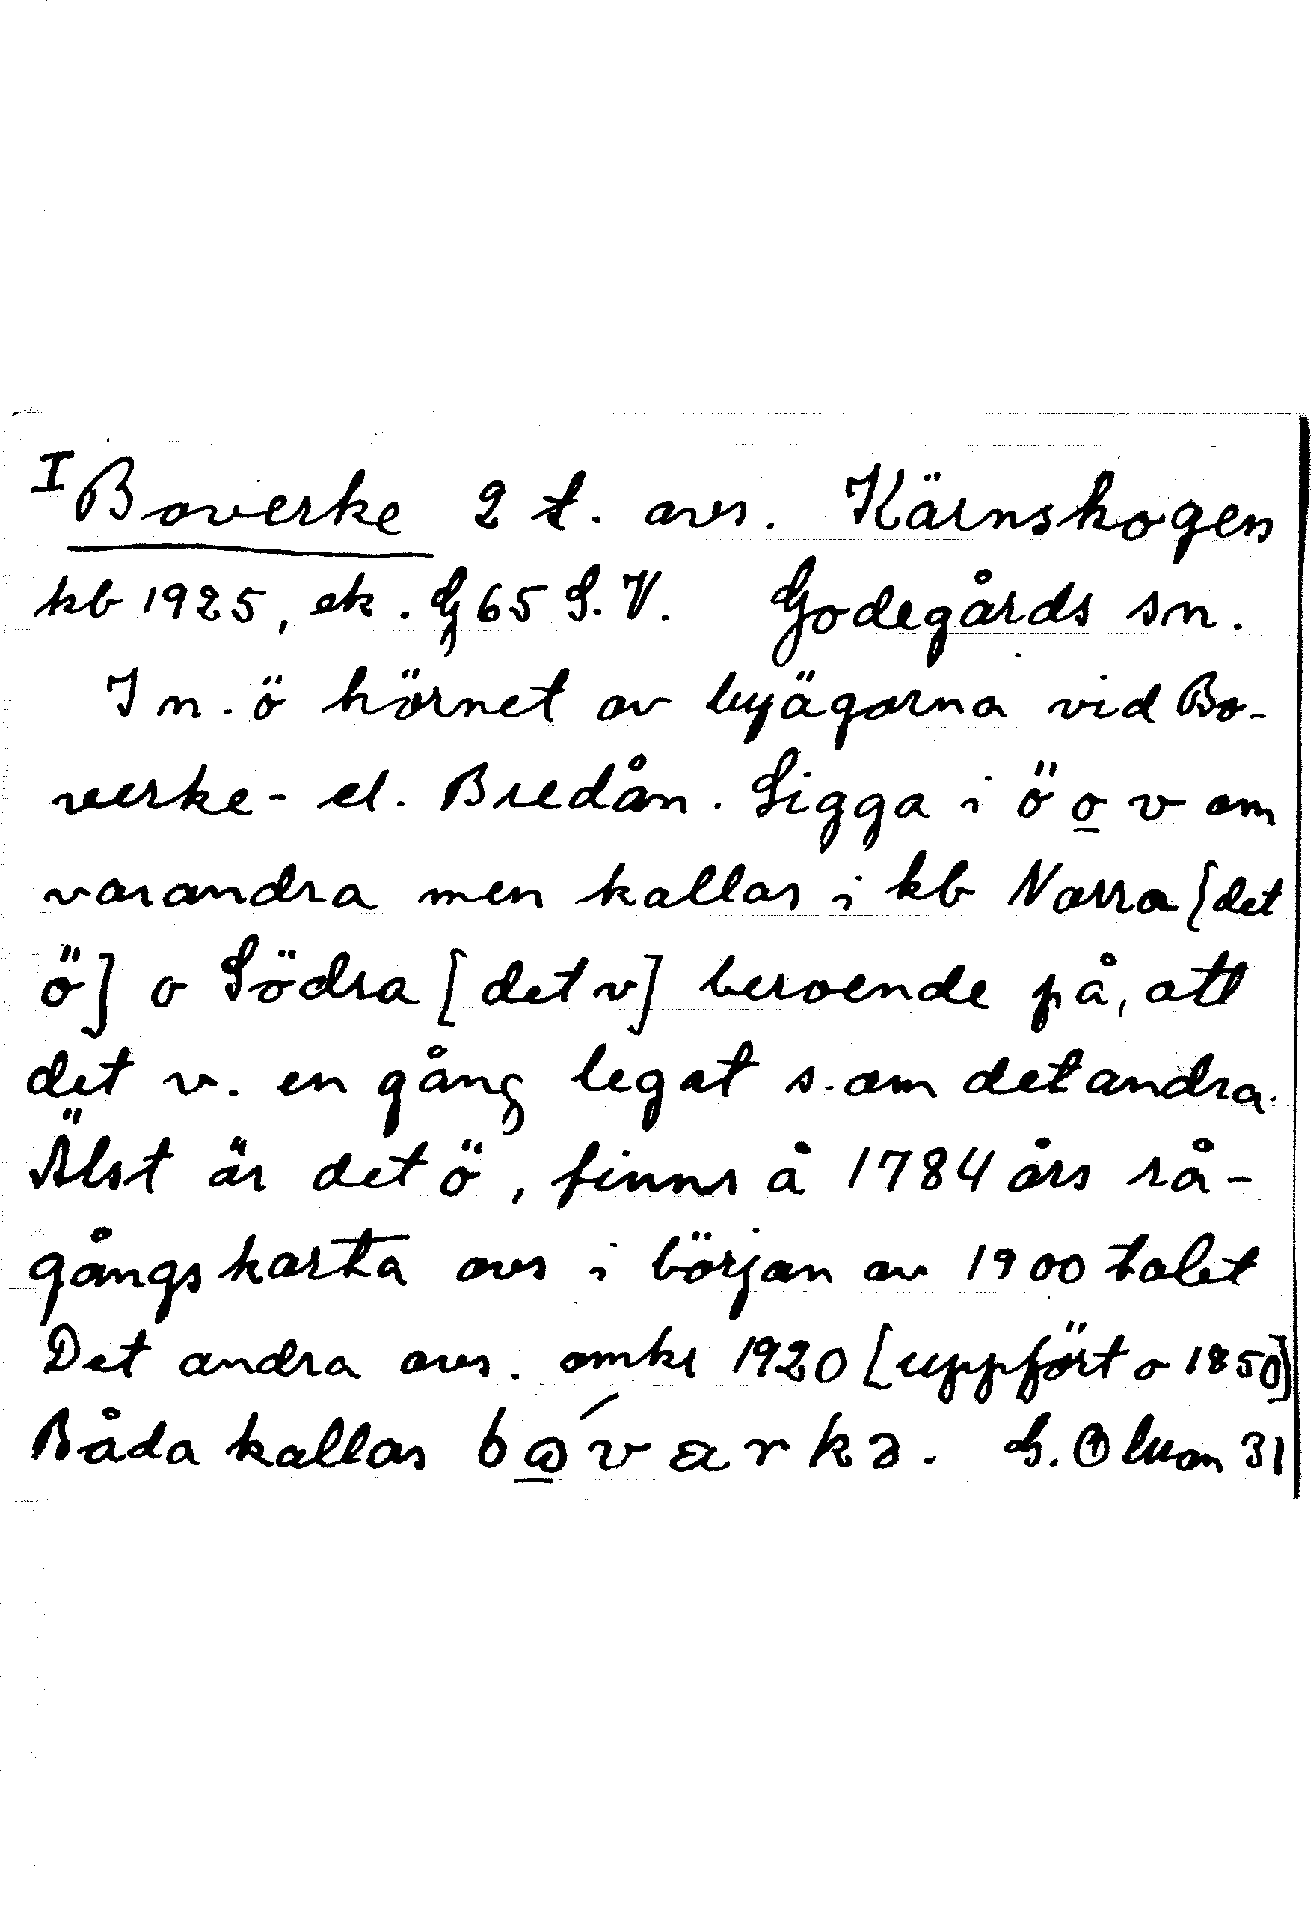 I Boverke 2 t. avs. Kärnskogen
kb 1925, ek. G 65 S.V. Godegårds sn.
I n.ö hörnet av byägorna vid Bo-
verke- el. Bredån. Ligga i ö o v om
varandra men kallas i kb Norra [det
ö] o Södra [det v] beroende på, att
det v. en gång legat s. om det andra.
Älst är det ö, finns å 1784 års rå-
gångskarta avs i början av 1900 talet
Det andra avs. omkr 1920 [uppfört o 1850]
Båda kallas